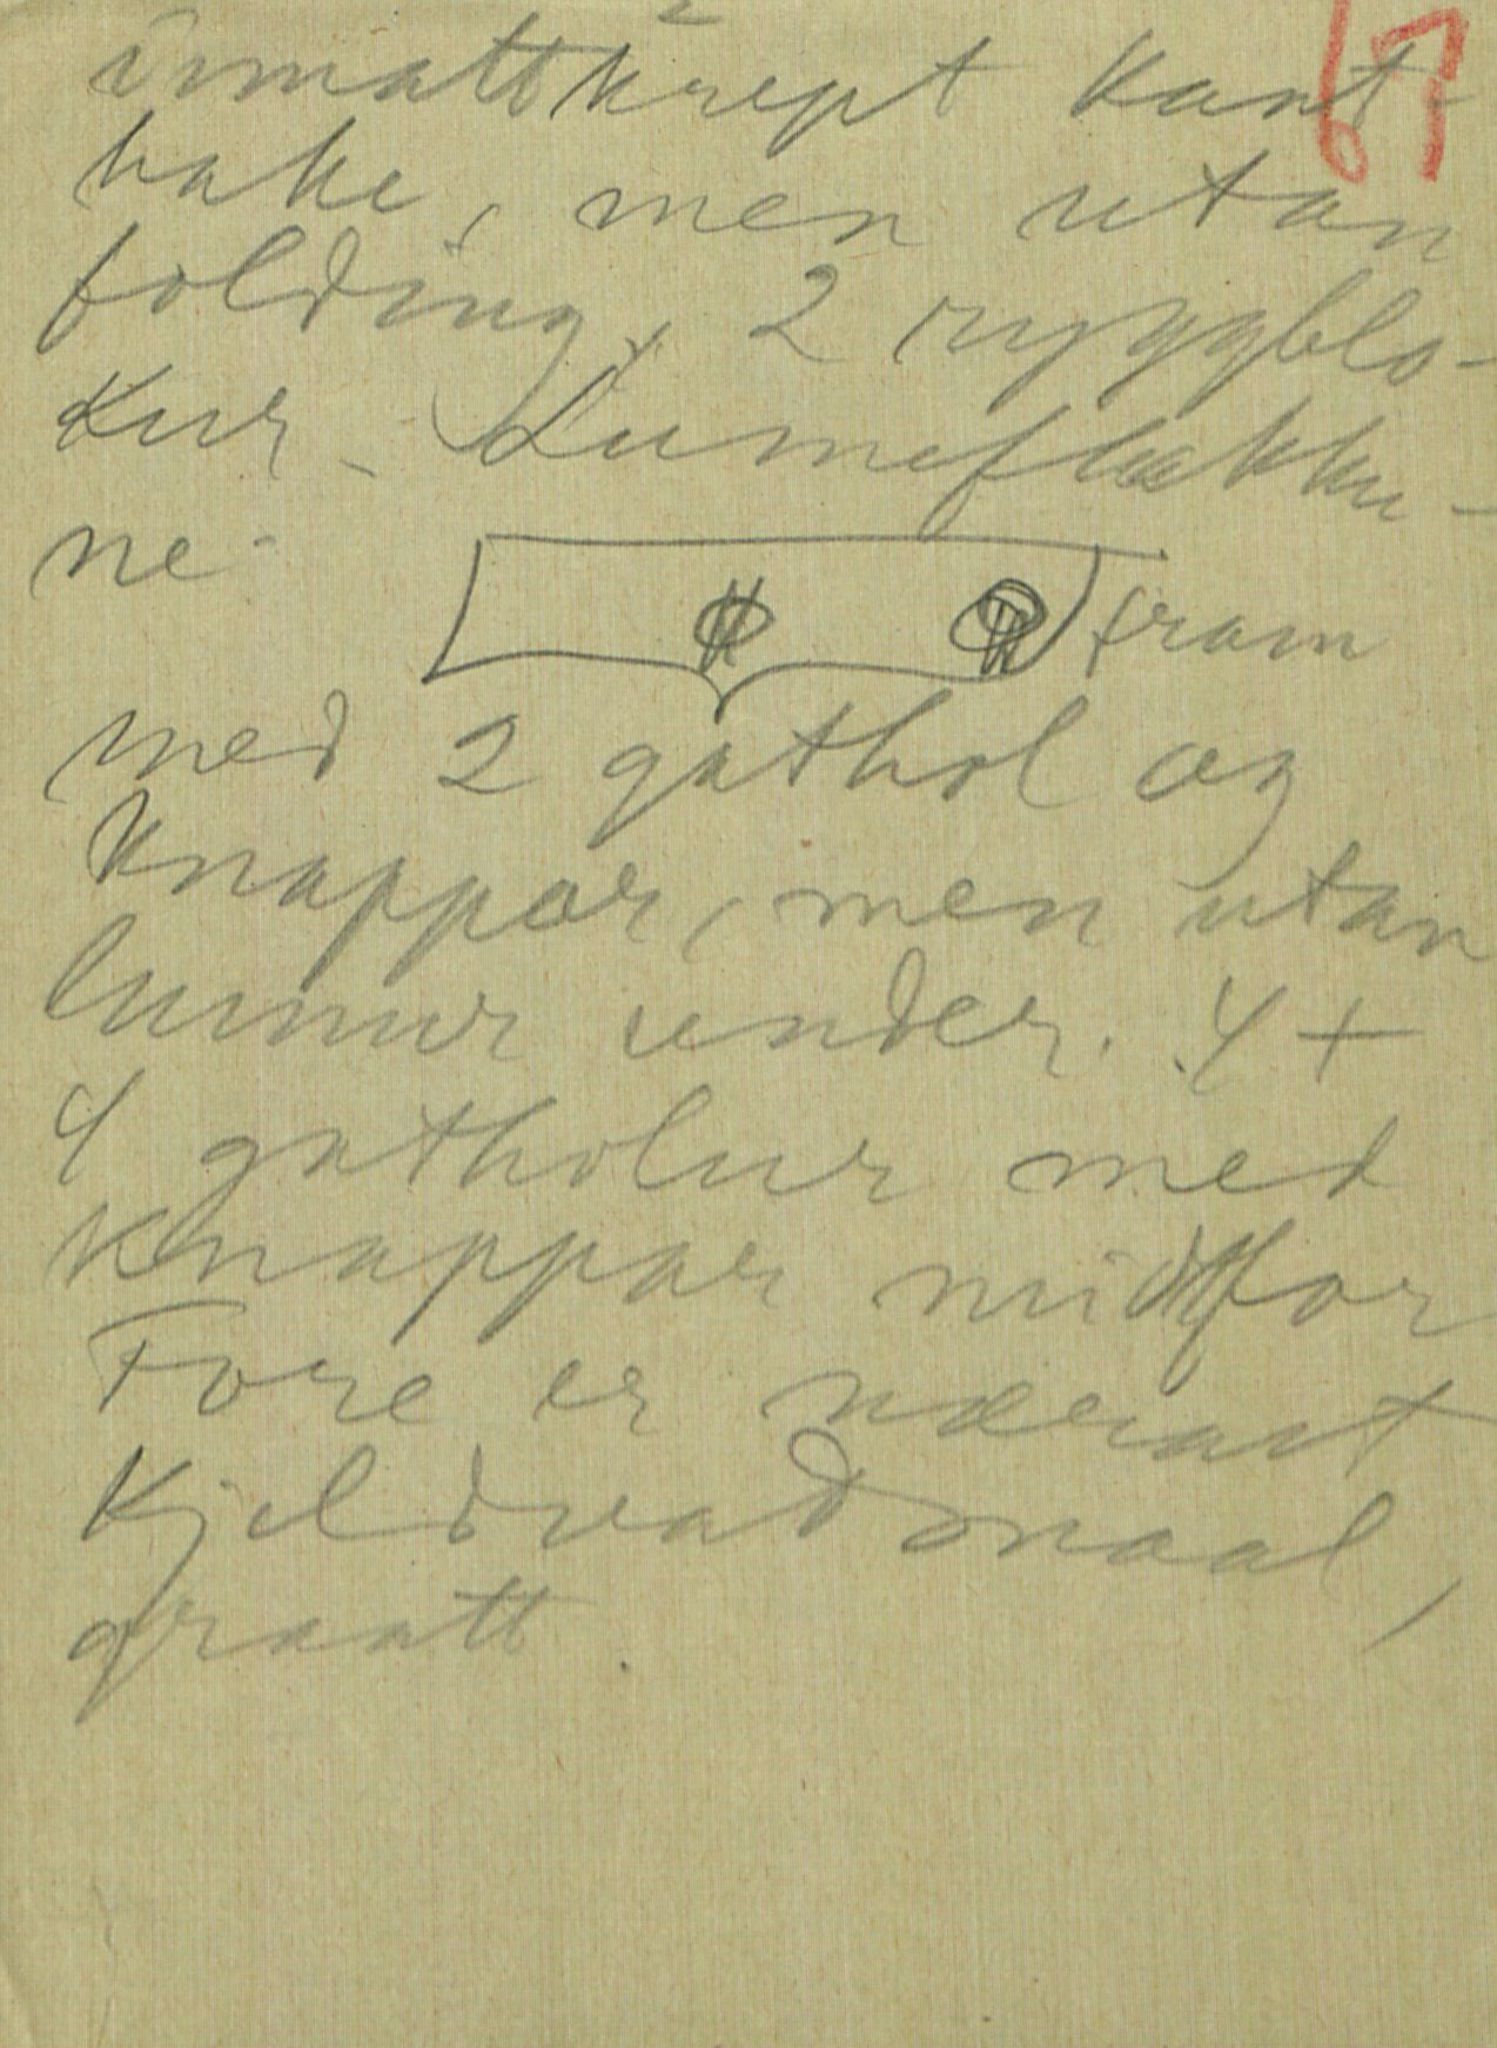 67
innattkrept kant
bake, men utan
folding, 2 ryggblo-
kur - Lumeflakku-
ne
fram
med 2 gathol og
knappar, men utan
lummur under. 4 +
4 gatholur med
knappar midtfor
Fore er nærast
Kjeldvadmaal,
graatt.